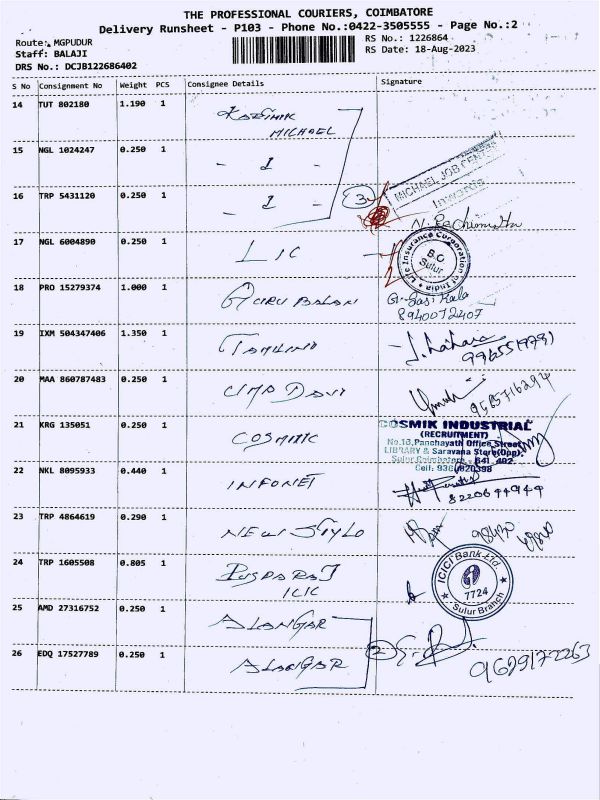 THE PROFESSIONAL COURIERS, COIMBATORE
Delivery Runsheet - P103 - Phone No.:0422-3505555 - Page No.:2
Route: MGPUDUR
RS No.: 1226864
Staff: BALAJI
RS Date: 18-Aug-2023
DRS No.: DCJB122686402
S No Consignment No Weight PCS Consignee Details Signature
14 TUT 802180 1.190 1
MICHAEL
15 NGL 1024247 0.250 1 - 1 -
16 TRP 5431120 0.250 1 - 1 - 3
MICHAEL JOB CENTRE
17 NGL 6004890 0.250 1 LIC
Life Insurance Corporation of India
B.O
Sulur
18 PRO 15279374 1.000 1 GURU BALAN
8940072407
19 IXM 504347406 1.350 1
20 MAA 860787483 0.250 1 UMA DEVI
21 KRG 135051 0.250 1 COSMIC
COSMIK INDUSTRIAL
(RECRUITMENT)
No.18,Panchayath Office Street,
LIBRARY & Saravana Store(Opp),
Sulur Coimbatore - 641 402
22 NKL 8095933 0.440 1 INFONET
8220644949
23 TRP 4864619 0.290 1 NEW STYLO
24 TRP 1605508 0.805 1 PUSPARAJ
ICIC
ICICI Bank Ltd
7724
Sulur Branch
25 AMD 27316752 0.250 1 ALANGAR
26 EDQ 17527789 0.250 1 ALANGAR 2
9629172263